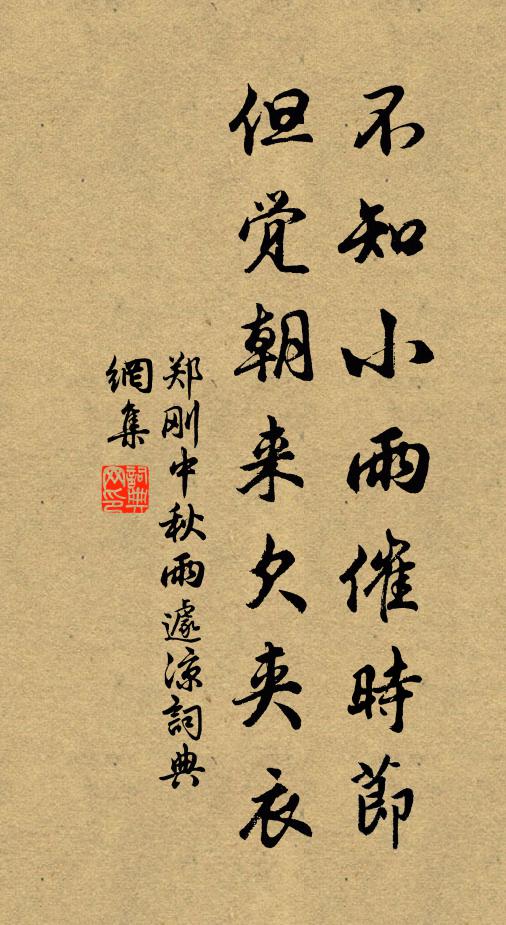 不知小雨催時節
但觉朝来欠夹衣
郑刚中秋雨遽凉詞典
網集
詞典
网印